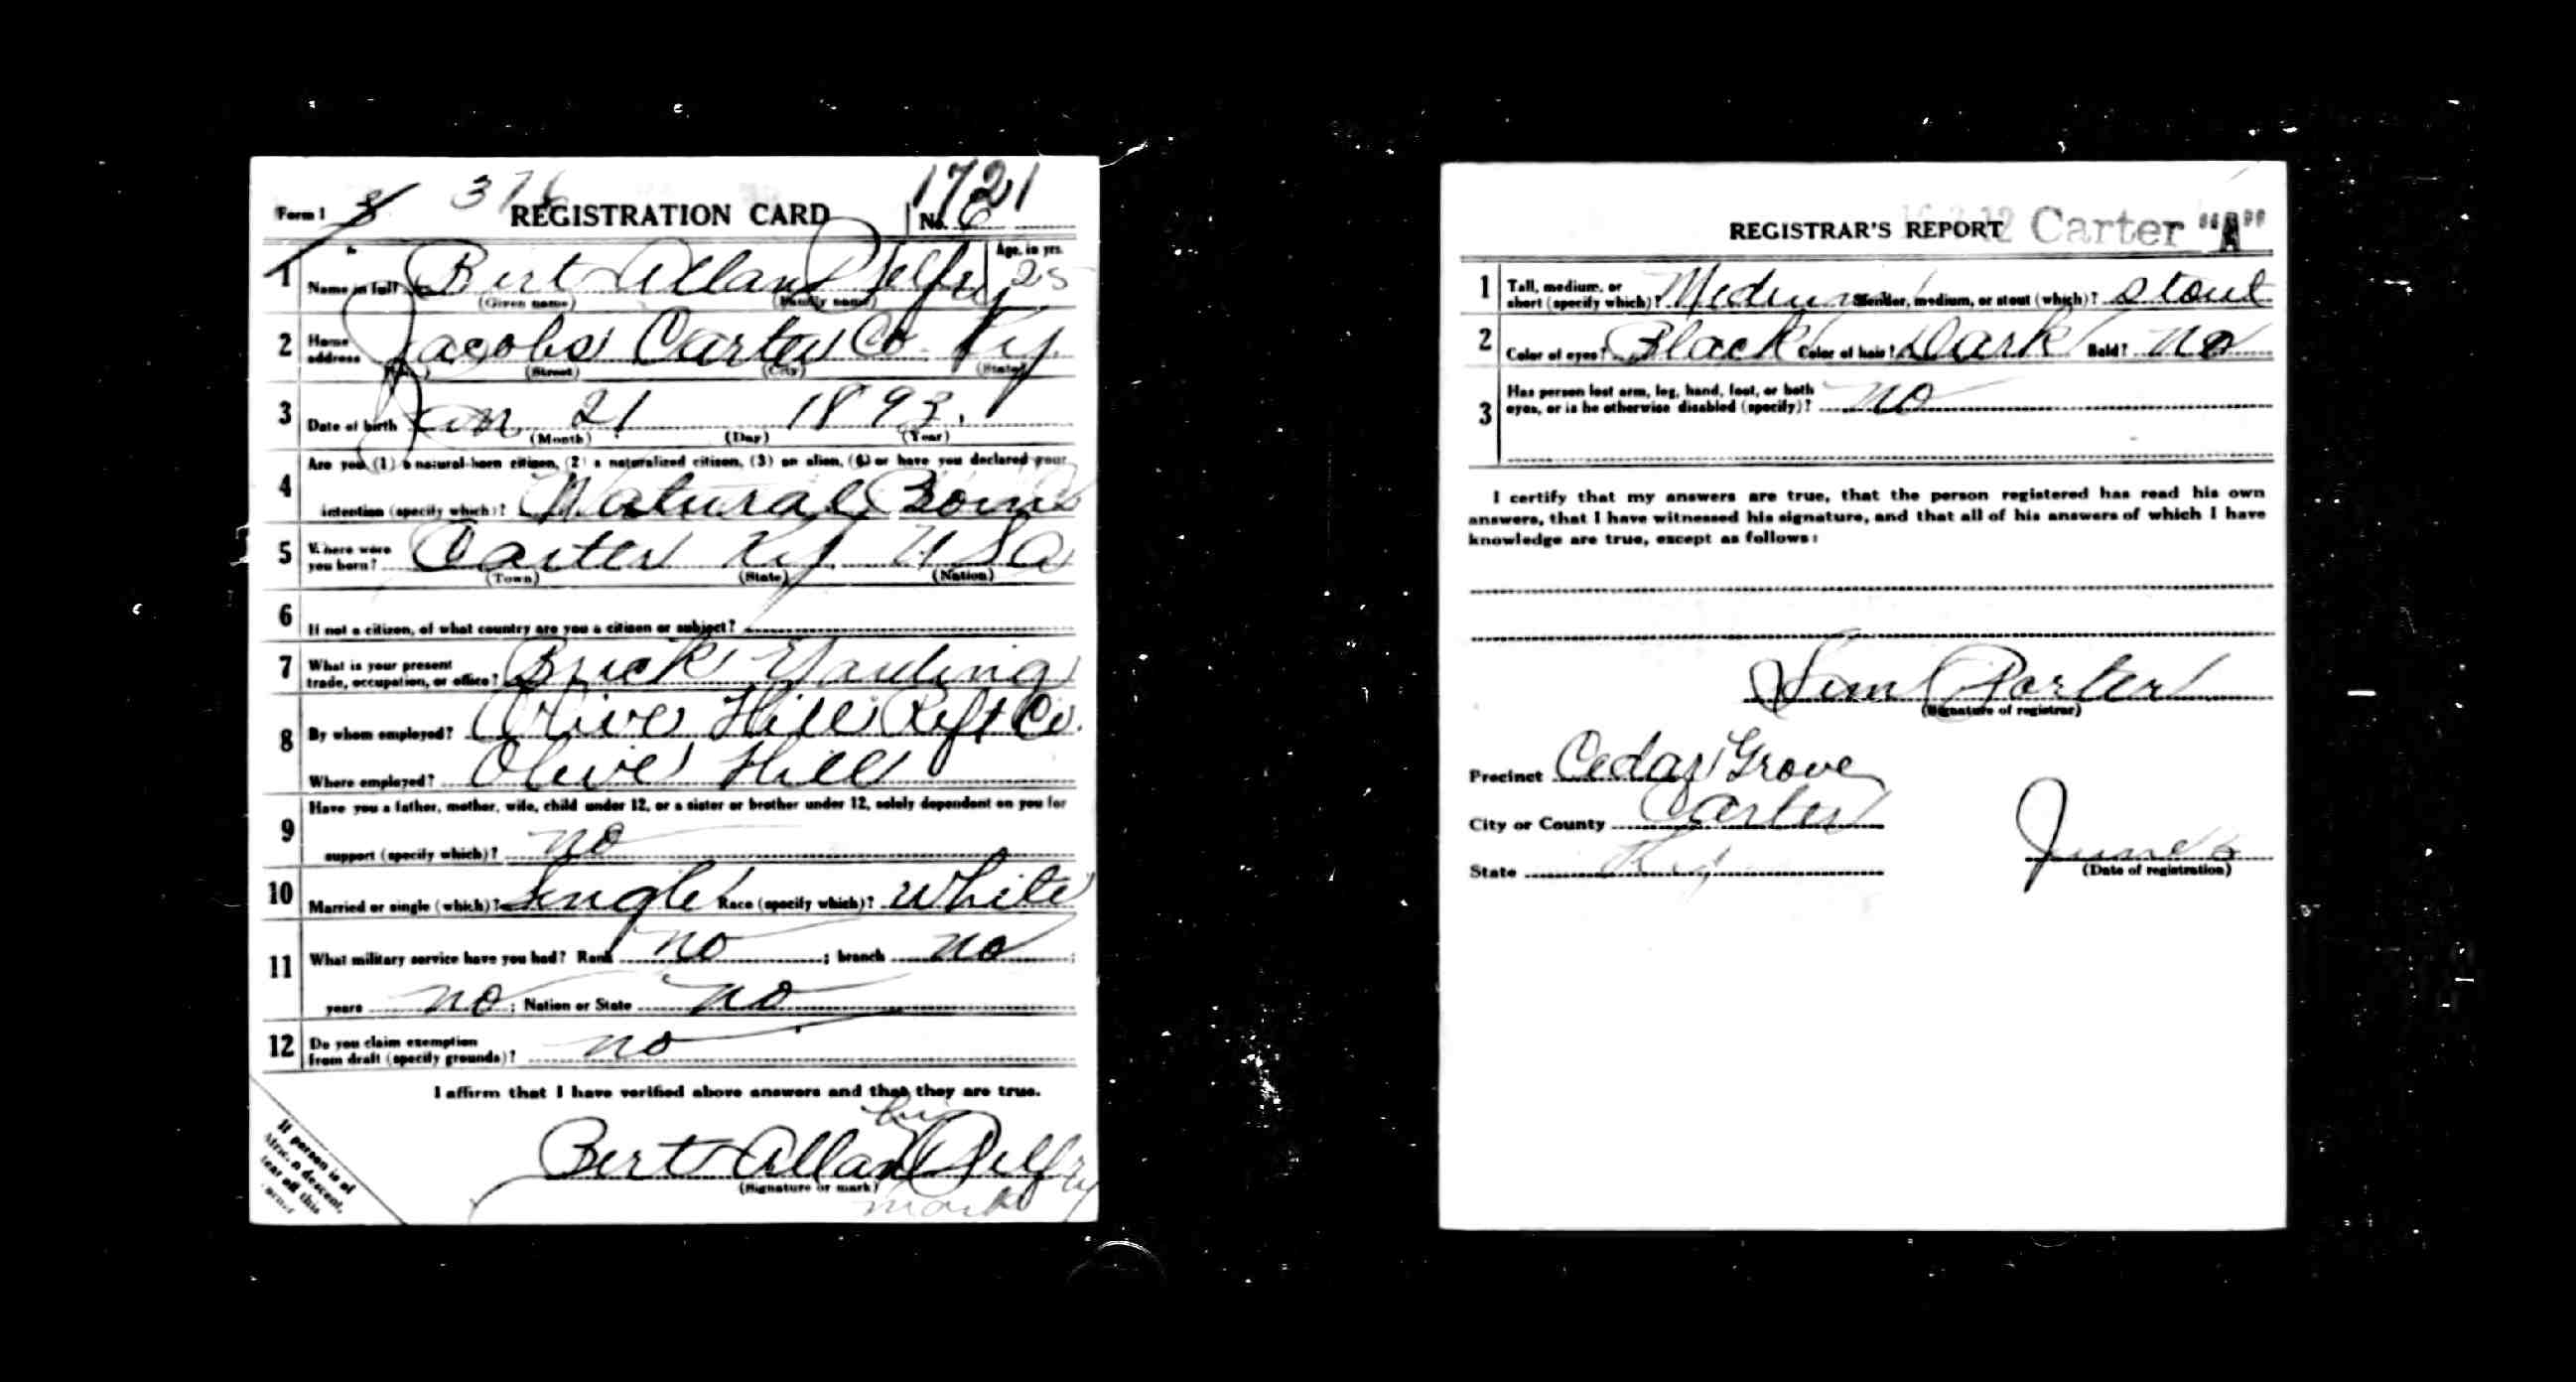 Form 1 376 REGISTRATION CARD No. 6 1721
1 Name in full Bert Allan Pelfry Age, in yrs. 25
(Given name) (Family name)
2 Home address Jacobs Carter Co Ky.
(Street) (City) (State)
3 Date of birth Jan 21 1893.
(Month) (Day) (Year)
4 Are you (1) a natural-born citizen, (2) a naturalized citizen, (3) an alien, (4) or have you declared your
intention (specify which)? Natural Born
5 Where were you born? Carter Ky. USA
(Town) (State) (Nation)
6 If not a citizen, of what country are you a citizen or subject?
7 What is your present
trade, occupation, or office? Brick
8 By whom employed? Olive Hill Rift Co.
Where employed? Olive Hill
9 Have you a father, mother, wife, child under 12, or a sister or brother under 12, solely dependent on you for
support (specify which)? no
10 Married or single (which)? Single Race (specify which)? White
11 What military service have you had? Rank no ; branch no ;
years no ; Nation or State no
12 Do you claim exemption
from draft (specify grounds)? no
I affirm that I have verified above answers and that they are true.
his
Bert Allan Pelfry
(Signature or mark)
mark
If person is of
African descent,
tear off this
corner
REGISTRAR'S REPORT Carter "A"
1 Tall, medium, or
short (specify which)? Medium Slender, medium, or stout (which)? Stout
2 Color of eyes? Black Color of hair? Dark Bald? No
3 Has person lost arm, leg, hand, foot, or both
eyes, or is he otherwise disabled (specify)? no
I certify that my answers are true, that the person registered has read his own
answers, that I have witnessed his signature, and that all of his answers of which I have
knowledge are true, except as follows:
Sim Porter
(Signature of registrar)
Precinct Cedar Grove
City or County Carter
State Ky
June 5
(Date of registration)